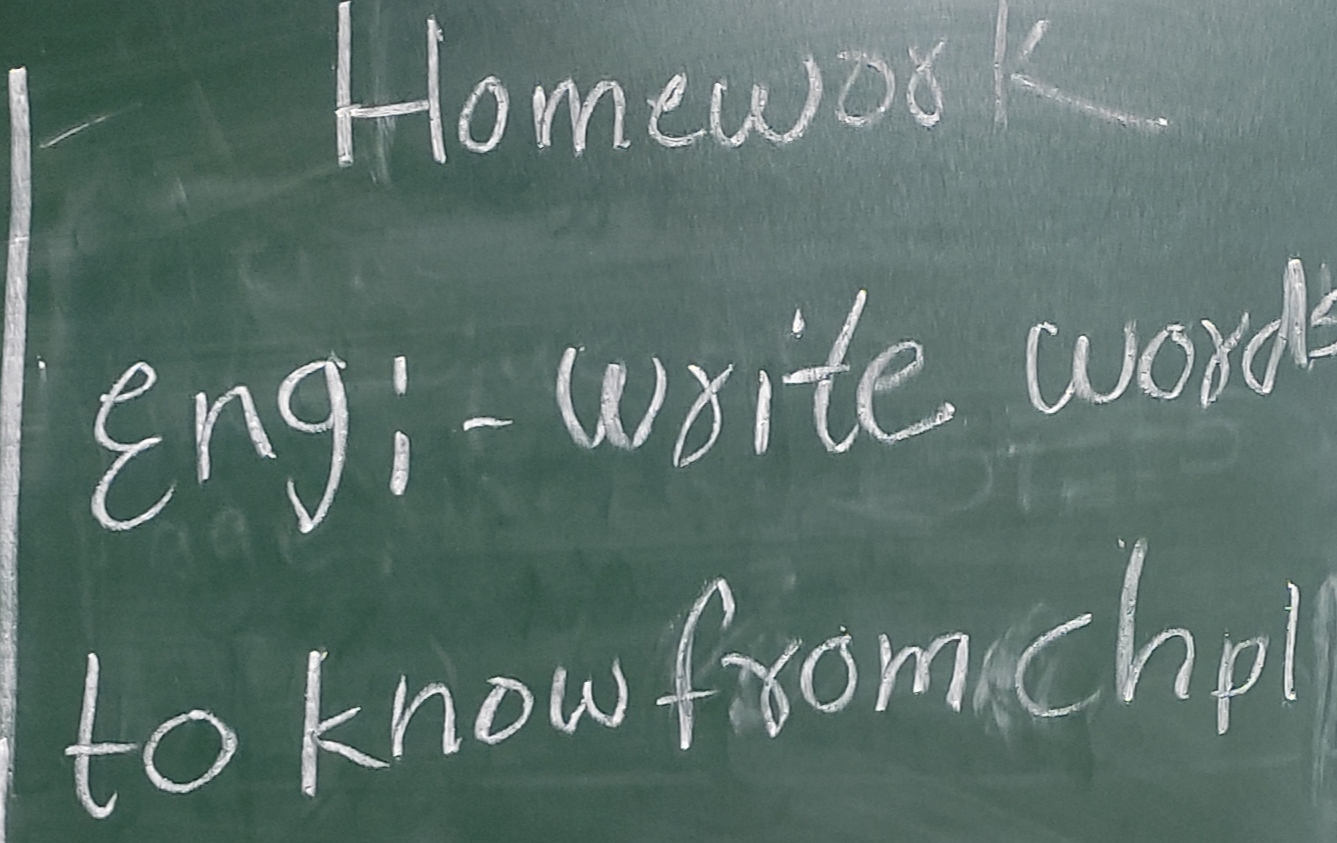 Homework
Eng:- write words
to know from chp1